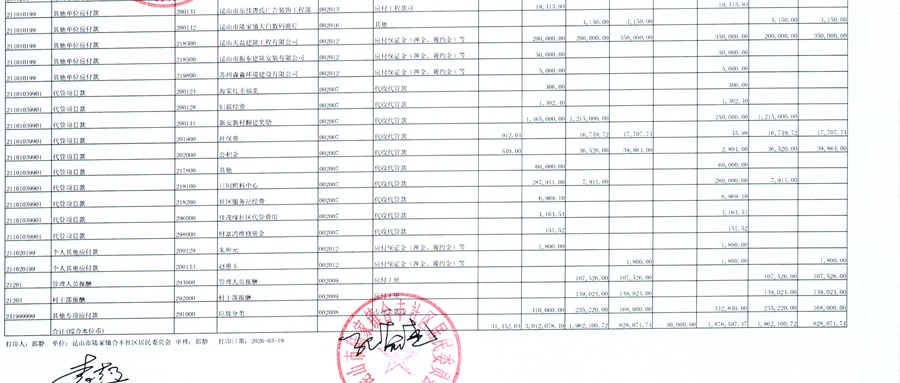 211010199 其他单位应付款 200131 昆山市乐佳费氏广告装饰工程部 002013 应付工程款项 19,113.93 19,113.93
211010199 其他单位应付款 200142 昆山市陆家镇大自数码商行 002016 其他 4,150.00 4,150.00 4,150.00 4,150.00
211010199 其他单位应付款 218300 昆山天磊建筑工程有限公司 002012 应付保证金（押金、履约金）等 200,000.00 200,000.00 350,000.00 350,000.00 200,000.00 350,000.00
211010199 其他单位应付款 218500 昆山市振东建筑安装有限公司 002012 应付保证金（押金、履约金）等 50,000.00 50,000.00
211010199 其他单位应付款 219800 苏州森淼环境建设有限公司 002012 应付保证金（押金、履约金）等 5,000.00 5,000.00
21101039901 代管项目款 200124 海棠红幸福 002007 代收代管款 306.00 306.00
21101039901 代管项目款 200128 妇联经费 002007 代收代管款 1,302.10 1,302.10
21101039901 代管项目款 200141 新安新村翻建奖励 002007 代收代管款 1,465,000.00 1,215,000.00 250,000.00 1,215,000.00
21101039901 代管项目款 201900 社保费 002007 代收代管款 912.04 16,749.72 17,707.74 45.98 16,749.72 17,707.74
21101039901 代管项目款 202000 公积金 002007 代收代管款 540.00 36,520.00 39,864.00 2,804.00 36,520.00 39,864.00
21101039901 代管项目款 217800 其他 002007 代收代管款 60,000.00 60,000.00
21101039901 代管项目款 218100 日间照料中心 002007 代收代管款 287,911.00 7,911.00 280,000.00 7,911.00
21101039901 代管项目款 218200 社区服务站经费 002007 代收代管款 6,969.10 6,969.10
21101039901 代管项目款 296000 佳茂缘社区代管费用 002007 代收代管款 4,164.54 4,164.54
21101039901 代管项目款 298000 财富湾维修资金 002007 代收代管款 151.52 151.52
211020199 个人其他应付款 200129 朱坤元 002012 应付保证金（押金、履约金）等 1,800.00 1,800.00
211020199 个人其他应付款 200143 赵惠玉 002012 应付保证金（押金、履约金）等 1,800.00 1,800.00 1,800.00
21201 管理人员报酬 293000 管理人员报酬 002009 应付工资 107,526.00 107,526.00 107,526.00 107,526.00
21203 村干部报酬 292000 村干部报酬 002009 139,024.00 139,024.00 139,024.00 139,024.00
241999999 其他专项应付款 291000 垃圾分类 002008 110,060.00 235,220.00 168,000.00 342,840.00 235,220.00 168,000.00
合计(综合本位币) 31,452.04 3,812,078.49 1,962,100.72 828,071.74 30,000.00 1,876,597.47 1,962,100.72 828,071.74
打印人：邵静 单位：昆山市陆家镇合丰社区居民委员会 审核：邵静 打印日期：2026-03-19